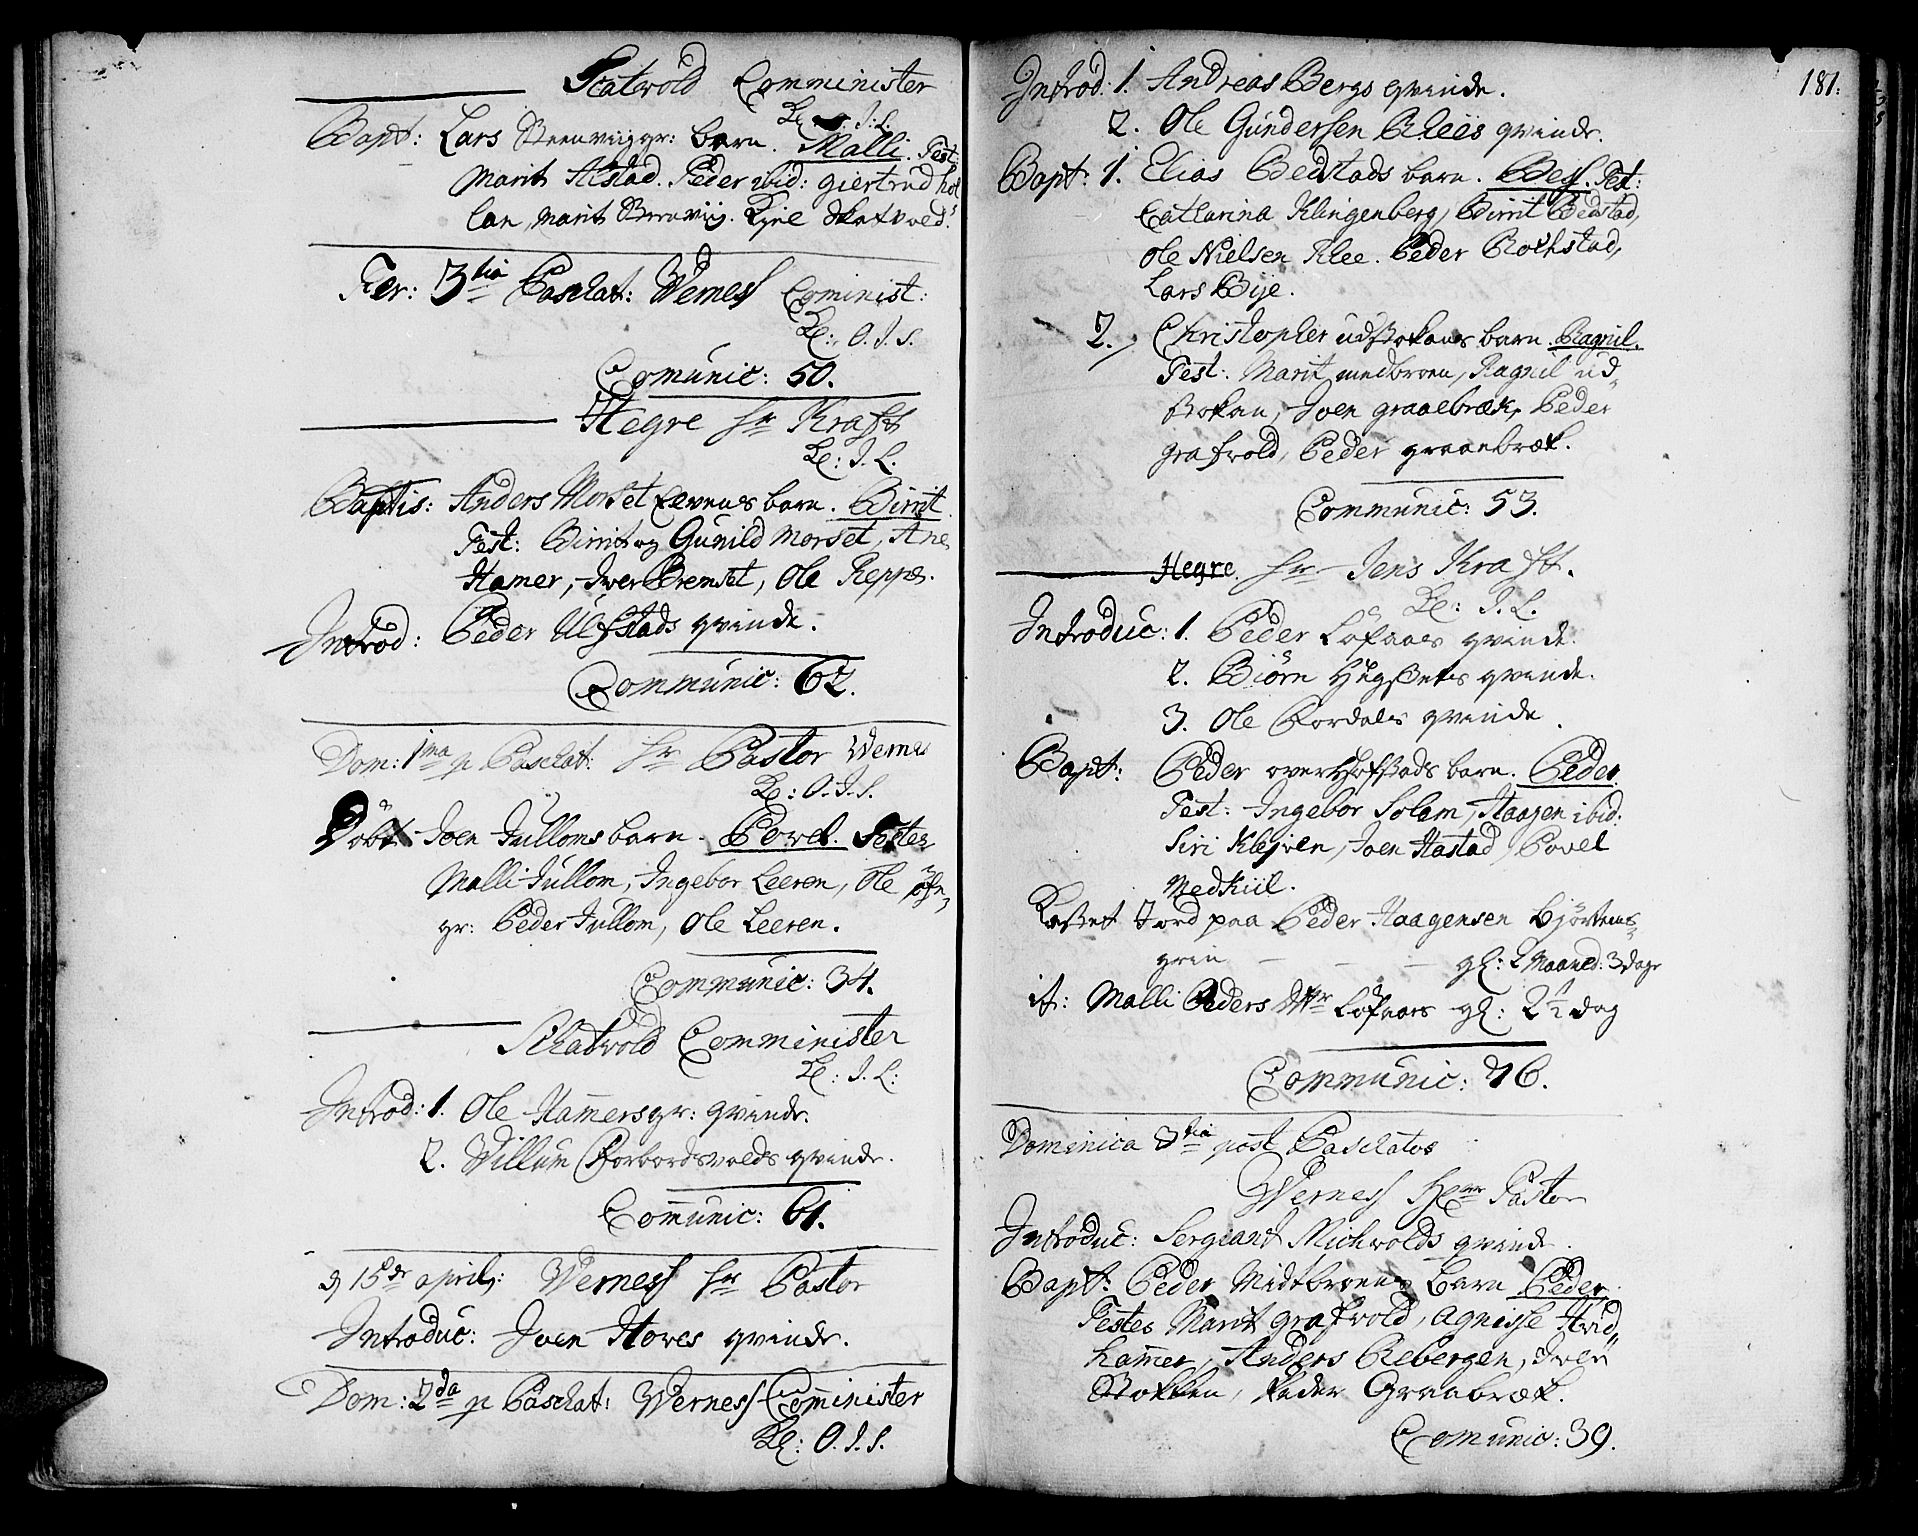 Scatvold Comminister
Kl: J: L.
Bapt: Lars Steenviiggr: barn. Malli. Test:
Marit Alstad. Peder ibid: giertrud hol
lan, Marit Steenviig. Kiel Skatvold.
Fer: 3tia Paschat: Werness Cominist:
Kl: O. J. S.
Comunic: 50.
Hegre Hr Krafft
Kl: J. L.
Baptis: Anders Morset Elvens barn. Birrit.
Test: Birrit og Gunild Morset, Ane
Hamer, Iver Bremset, Ole Reppe.
Introd: Peder Ulfstads qvinde.
Communic: 62.
Dom: 1ma p Paschat: Hr Pastor Wernes
Kl: O. J. S.
Döbt Joen Jülloms barn. Povel. Testes
Malli Jüllom, Ingebor Leeren, Ole öfr,
gr: Peder Jullom, Ole Leeren.
Communic: 34.
Schatvold Comminister
Kl: J. L:
Introd: 1. Ole Hamersgr: qvinde.
2. Willum Forbordsvolds qvinde.
Comunic: 61.
d 15de april: Werness Hr Pastor
Introduc: Joen Hoves qvinde.
Dom: 2da p Paschat: Werness Comminister
Kl: O. J. S.
181.
Introd: 1. Andreas Bergs qvinde.
2. Ole Gundersen Klees qvinde.
Bapt: 1. Elias Bedstads barn. Bess. Test:
Catharina Klingenberg, Birrit Bedstad,
Ole Nielsen Klee. Peder Rothstad,
Lars Bye.
2. Christopher udstokans barn. Ragnil.
Test: Marit medbroen, Ragnil ud-
stokan, Joen graaebræk, Peder
grafvold, Peder graaebræk.
Communic: 53.
Hegre. Hr Jens Krafft.
Kl: J. L.
Introduc: 1. Peder Löfaaes qvinde.
2. Biörn Hegsetes qvinde.
3. Ole Fordals qvinde.
Bapt: Peder overHofstads barn. Peder
Test: Ingebor Solem, Haagen ibid:
Siri Klefven, Joen Hastad, Povel
Medkiil.
Kastet Jord paa Peder Haagensen Biörtens-
grin — — — gl: 2 Maaned: 3 dage
it: Malli Peders Dttr Löfaaes gl: 2 1/2 dag
Communic: 76.
Dominica 3tia post Paschatos
Werness Herr Pastor
Introduc: Sergeant Richvolds qvinde.
Bapt: Peder Midtbroens barn Peder
Testes Marit grafvold, Agnisse Hvid,
hamer, Anders Rebergen, Iver
Stokken, Peder Graabræk.
Comunic: 39.